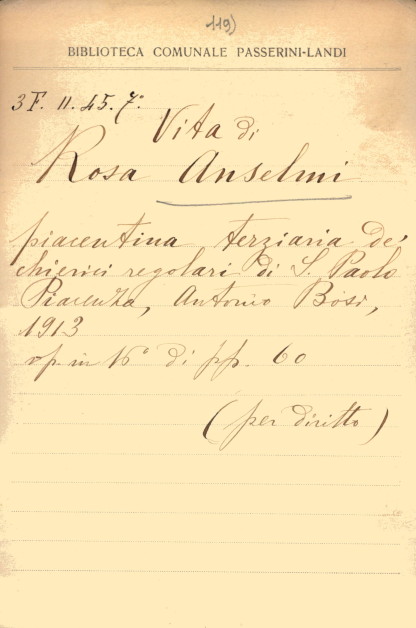 119)
BIBLIOTECA COMUNALE PASSERINI-LANDI
3 F. II. 45. 7°.
Vita di
Rosa Anselmi
piacentina terziaria de'
chierici regolari di S. Paolo
Piacenza, Antonio Bosi,
1913
op. in 16° di pp. 60
(per diritto)